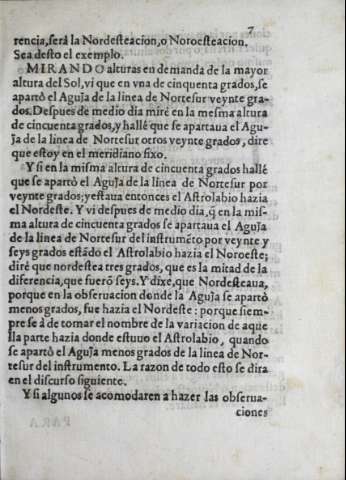 7
rencia,ſerá la Nordeſteacion,o Noroeſteacion.
Sea deſto el exemplo.
MIRANDO alturas en demanda de la mayor
altura del Sol,vi que en vna de cinquenta grados,ſe
apartò el Aguja de la linea de Norteſur veynte gra-
dos.Deſpues de medio dia mirè en la meſma altura
de cincuenta grados,y hallé que ſe apartaua el Agu-
ja de la linea de Norteſur otros veynte grados, dire
que eſtoy en el meridiano fixo.
Y ſi en la miſma altura de cincuenta grados hallé
que ſe apartò el Aguja de la línea de Norteſur por
veynte grados;yeſtaua entonces el Aſtrolabio hazia
el Nordeſte. Y vi deſpues de medio dia,q̃ en la miſ-
ma altura de cincuenta grados ſe apartaua el Aguja
de la linea de Norteſur del inſtrumẽto por veynte y
ſeys grados eſtãdo el Aſtrolabio hazia el Noroeſte;
dirè que nordeſtea tres grados, que es la mitad de la
diferencia,que fuerõ ſeys.Y dixe,que Nordeſteaua,
porque en la obſeruacion donde la Aguja ſe apartò
menos grados, fue hazia el Nordeſte : porque ſiem-
pre ſe à de tomar el nombre de la variacion de aque
lla parte hazia donde eſtuuo el Aſtrolabio, quando
ſe apartò el Aguja menos grados de la linea de Nor-
teſur del inſtrumento. La razon de todo eſto ſe dira
en el diſcurſo ſiguiente.
Y ſi algunos ſe acomodaren a hazer las obſerua-
ciones